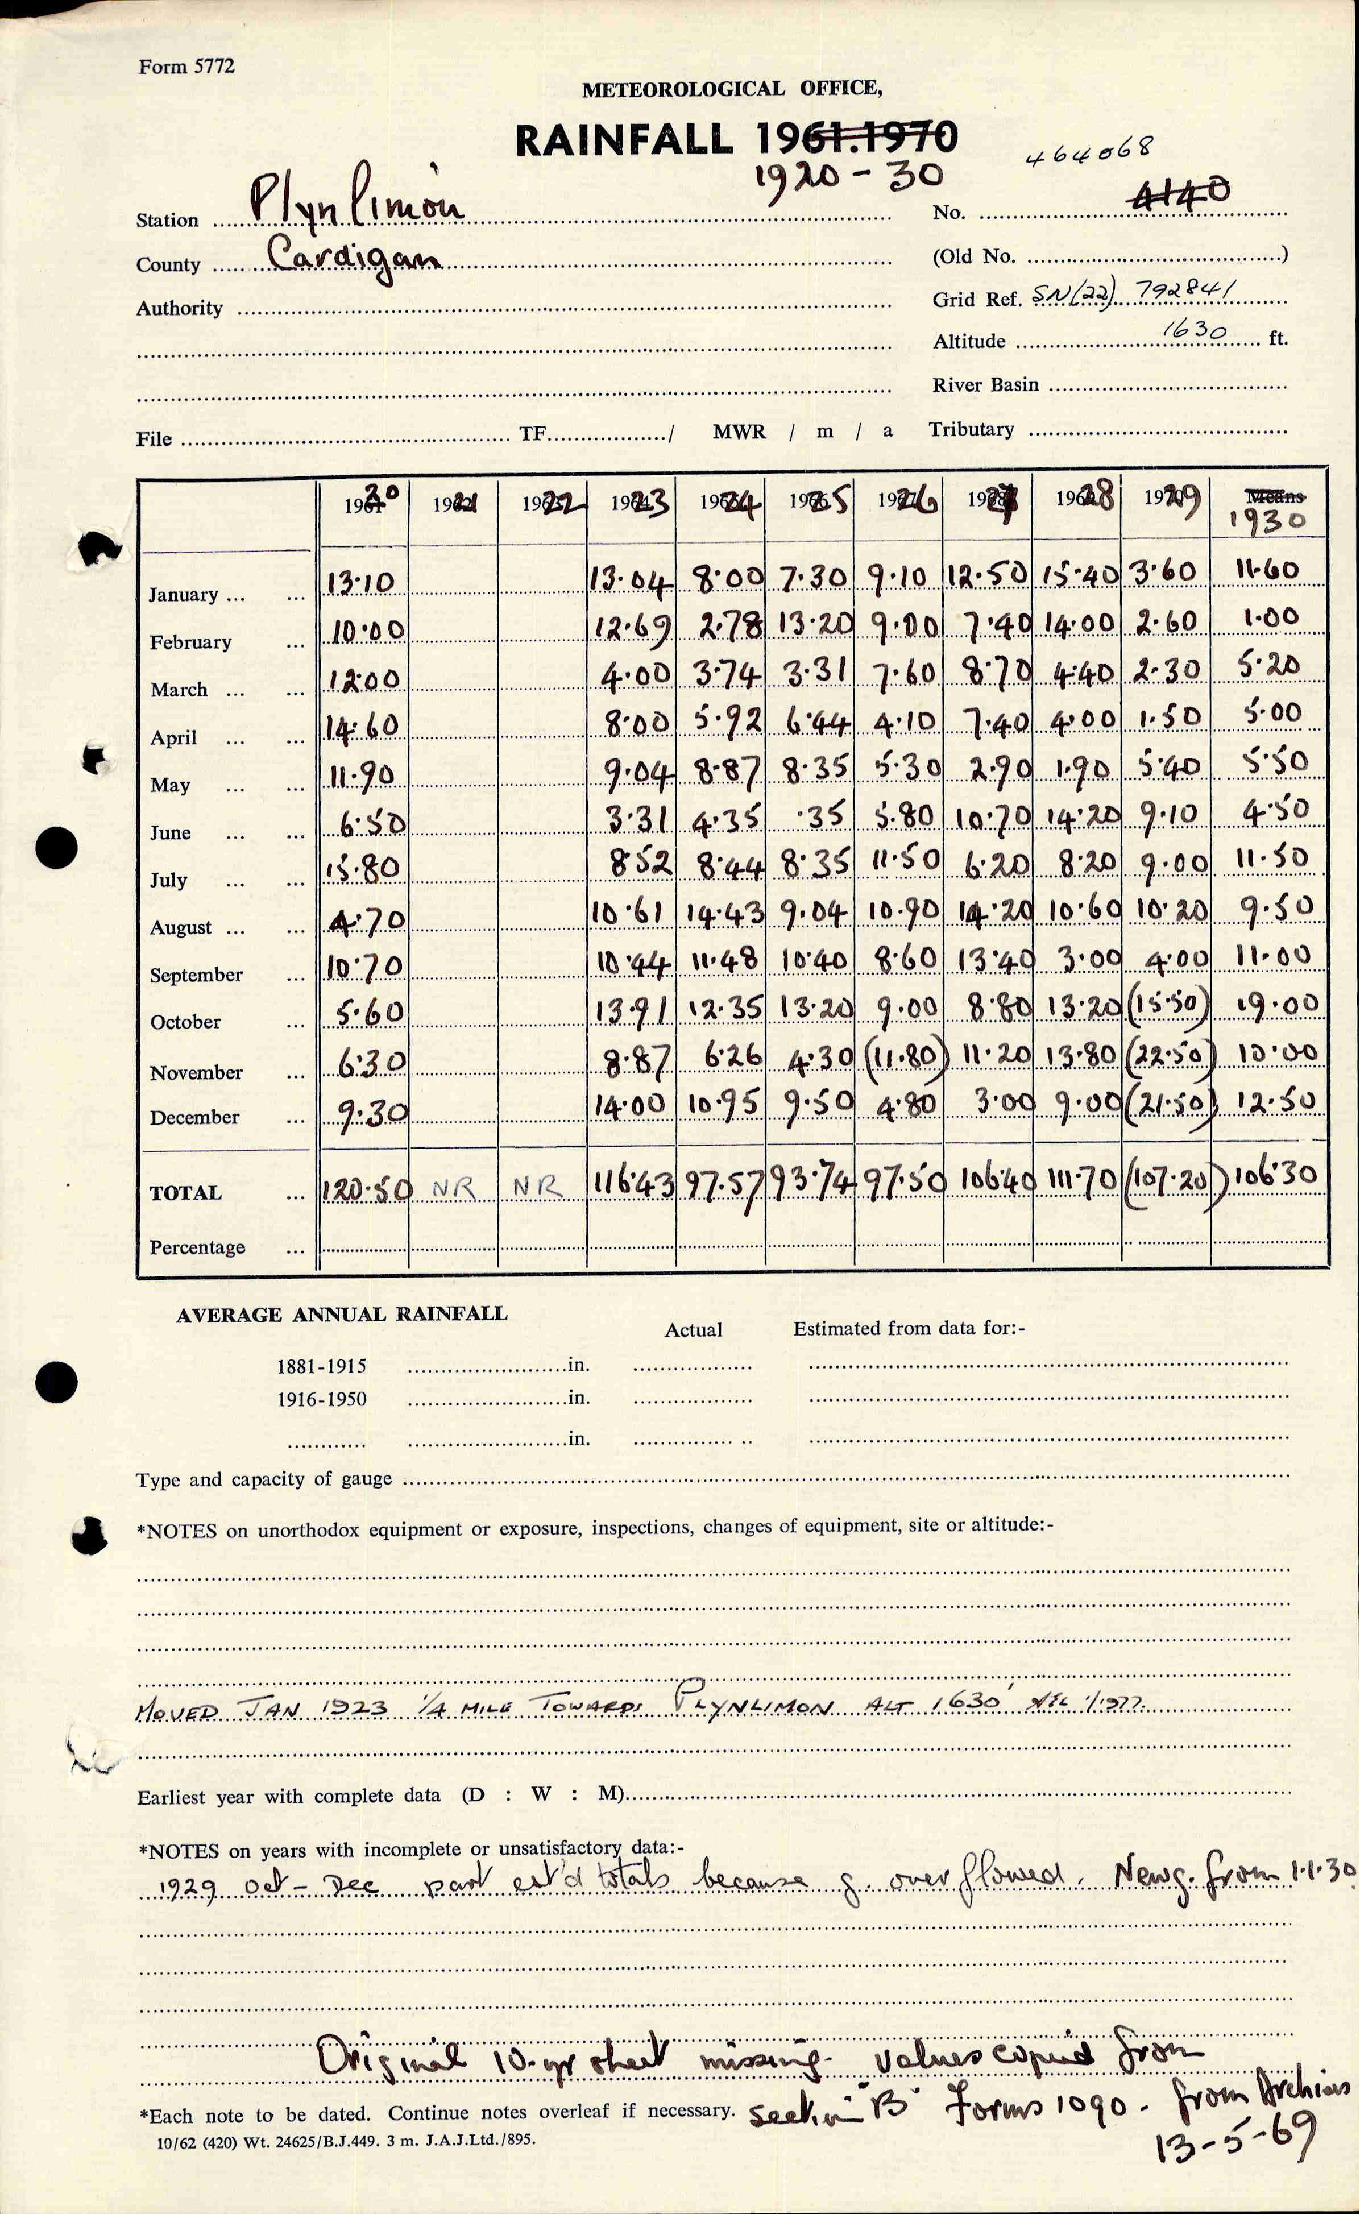 Form 5772
METEOROLOGICAL OFFICE,
RAINFALL 1961-1970
1920-30
464068
Station Plynlimon No. 4140
County Cardigan (Old No. )
Authority Grid Ref. SN(22) 792841
Altitude 1630 ft.
River Basin
File TF / MWR / m / a Tributary
1920 1921 1922 1923 1924 1925 1926 1927 1928 1929 Means 1930
January ... ... 13·10 13·04 8·00 7·30 9·10 12·50 15·40 3·60 11·60
February ... 10·00 12·69 2·78 13·20 9·00 7·40 14·00 2·60 1·00
March ... ... 12·00 4·00 3·74 3·31 7·60 8·70 4·40 2·30 5·20
April ... ... 14·60 8·00 5·92 6·44 4·10 7·40 4·00 1·50 5·00
May ... ... 11·90 9·04 8·87 8·35 5·30 2·90 1·90 5·40 5·50
June ... ... 6·50 3·31 4·35 ·35 5·80 10·70 14·20 9·10 4·50
July ... ... 15·80 8·52 8·44 8·35 11·50 6·20 8·20 9·00 11·50
August ... ... 4·70 10·61 14·43 9·04 10·90 14·20 10·60 10·20 9·50
September ... 10·70 10·44 11·48 10·40 8·60 13·40 3·00 4·00 11·00
October ... 5·60 13·91 12·35 13·20 9·00 8·80 13·20 (15·50) 19·00
November ... 6·30 8·87 6·26 4·30 (11·80) 11·20 13·80 (22·50) 10·00
December ... 9·30 14·00 10·95 9·50 4·80 3·00 9·00 (21·50) 12·50
TOTAL ... 120·50 NR NR 116·43 97·57 93·74 97·50 106·40 111·70 (107·20) 106·30
Percentage ...
AVERAGE ANNUAL RAINFALL
Actual Estimated from data for:-
1881-1915 in.
1916-1950 in.
in.
Type and capacity of gauge
*NOTES on unorthodox equipment or exposure, inspections, changes of equipment, site or altitude:-
MOVED JAN 1923 1/4 MILE TOWARDS PLYNLIMON ALT 1630'
Earliest year with complete data (D : W : M)
*NOTES on years with incomplete or unsatisfactory data:-
1929 Oct - Dec part est'd totals because g. overflowed. New g. from 1·1·30
Original 10-yr sheet missing. Values copied from
*Each note to be dated. Continue notes overleaf if necessary. section "B" Forms 1090. from Archives
10/62 (420) Wt. 24625/B.J.449. 3 m. J.A.J.Ltd./895.
13-5-69